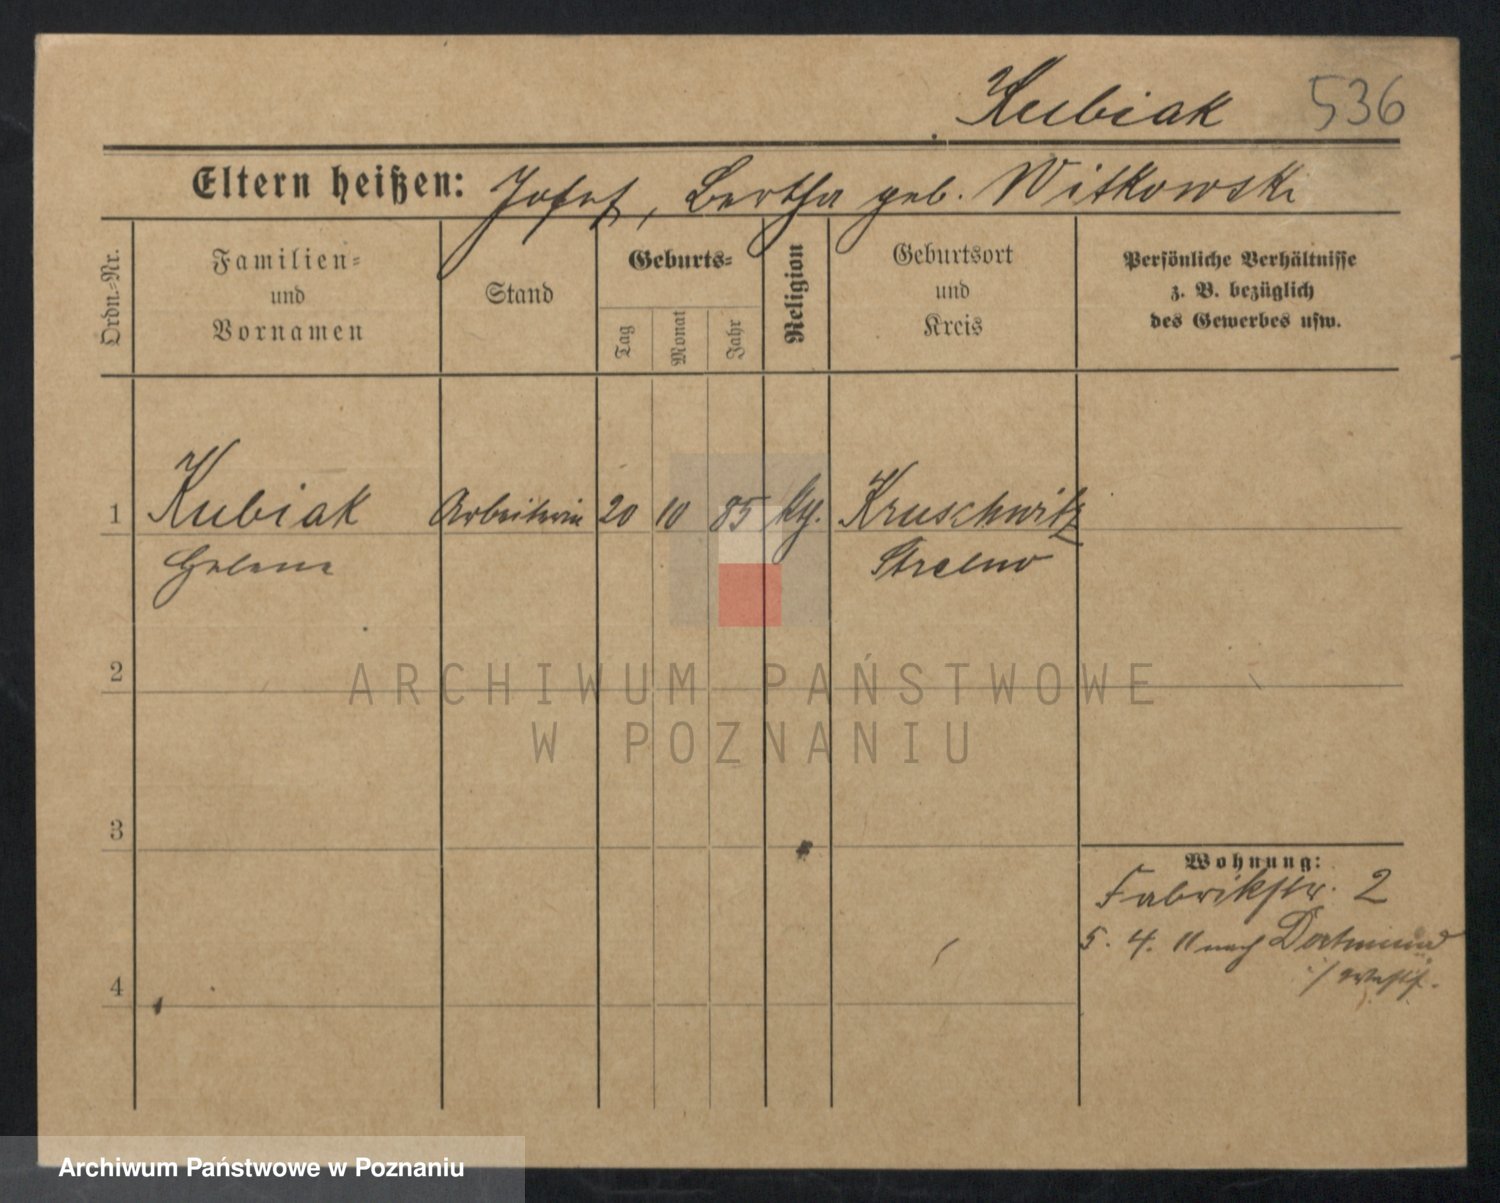 Kubiak 536
Eltern heißen: Josef, Bertha geb. Witkowski
Ordn.-Nr.
Familien-
und
Vornamen
Stand
Geburts-
Tag
Monat
Jahr
Religion
Geburtsort
und
Kreis
Persönliche Verhältnisse
z. B. bezüglich
des Gewerbes usw.
1 Kubiak Arbeiterin 20 10 85 Kruschwitz
Helene Strelno
2
ARCHIWUM PAŃSTWOWE
W POZNANIU
3
Wohnung:
Fabrikstr. 2
5. 4. 11 nach Dortmund
i/ Westf.
4
Archiwum Państwowe w Poznaniu